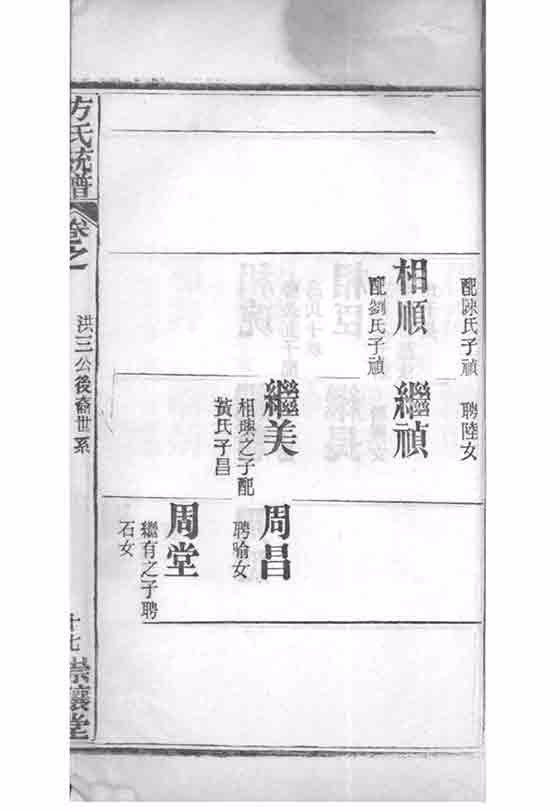 配陳氏子禎
聘陸女
相順
配劉氏子禎
繼禎
繼美
相興之子配
黃氏子昌
周昌
聘喻女
周堂
繼有之子聘
石女
方氏統譜
卷之
洪三公後裔世系
十七
崇讓堂